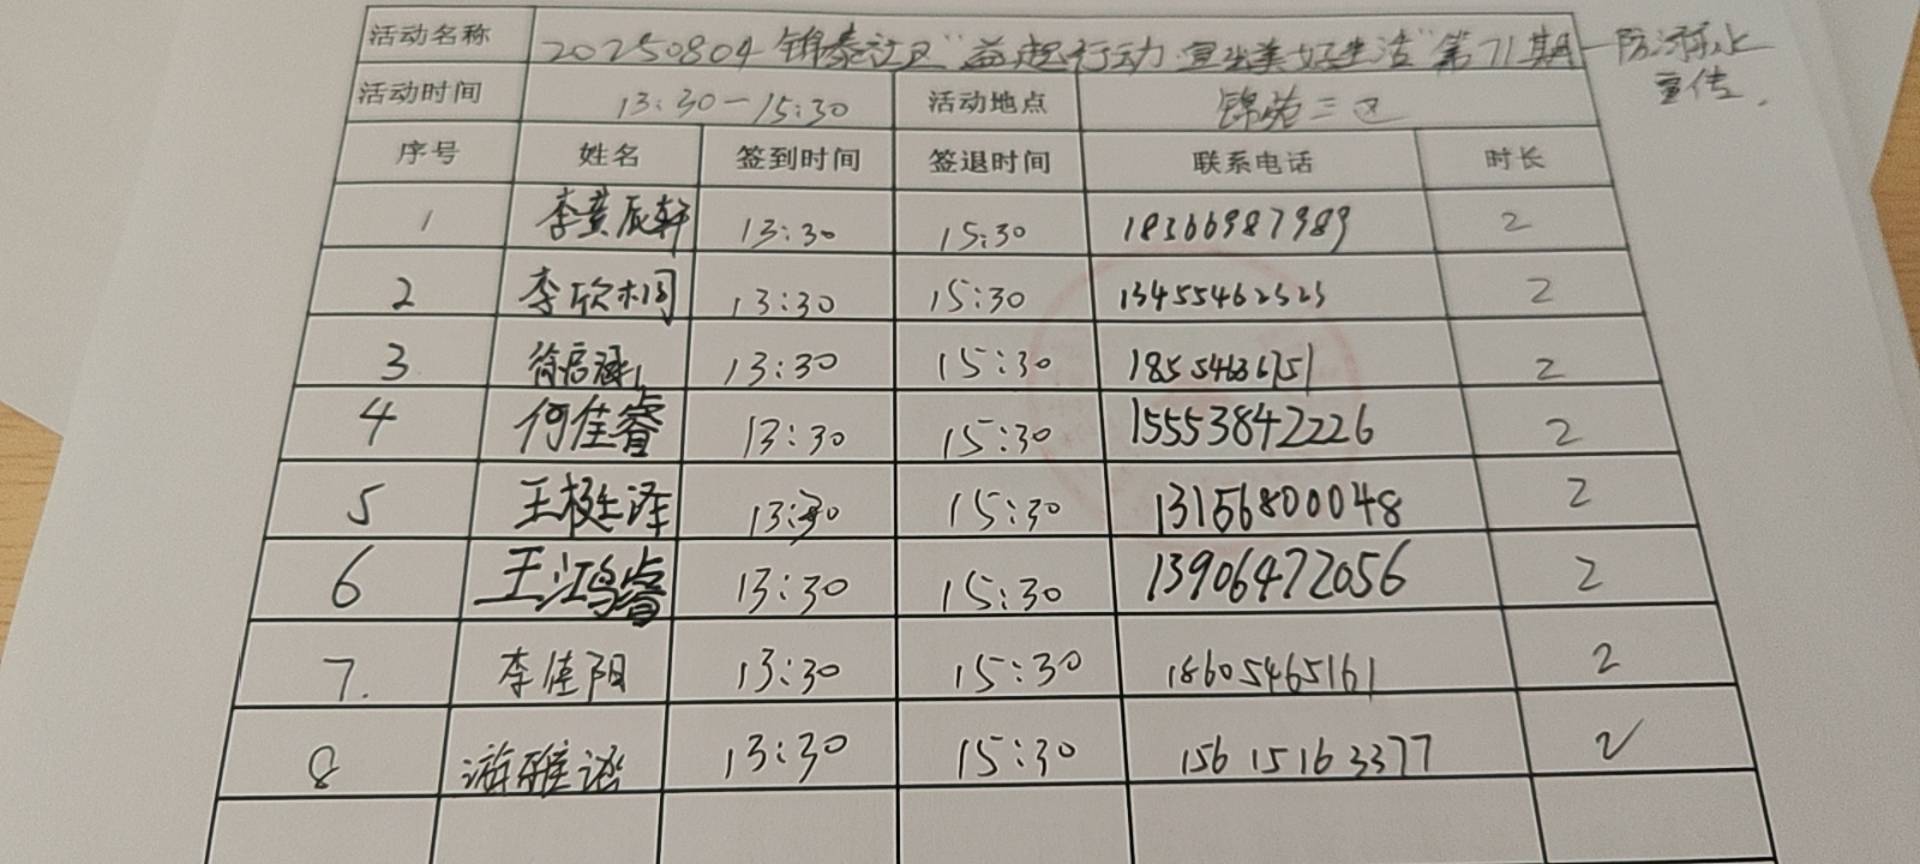 活动名称 20250804锦泰社区“益起行动·宜出美好生活”第71期—防溺水
宣传.
活动时间 13:30—15:30 活动地点 锦苑三区
序号 姓名 签到时间 签退时间 联系电话 时长
1 李黄辰轩 13:30 15:30 18366987989 2
2 李欣桐 13:30 15:30 13455462323 2
3 徐启涵 13:30 15:30 18554636751 2
4 何佳睿 13:30 15:30 15553842226 2
5 王梃泽 13:30 15:30 13156800048 2
6 王鸿睿 13:30 15:30 13906472056 2
7. 李佳阳 13:30 15:30 18605465161 2
8 游雅谧 13:30 15:30 15615163377 2